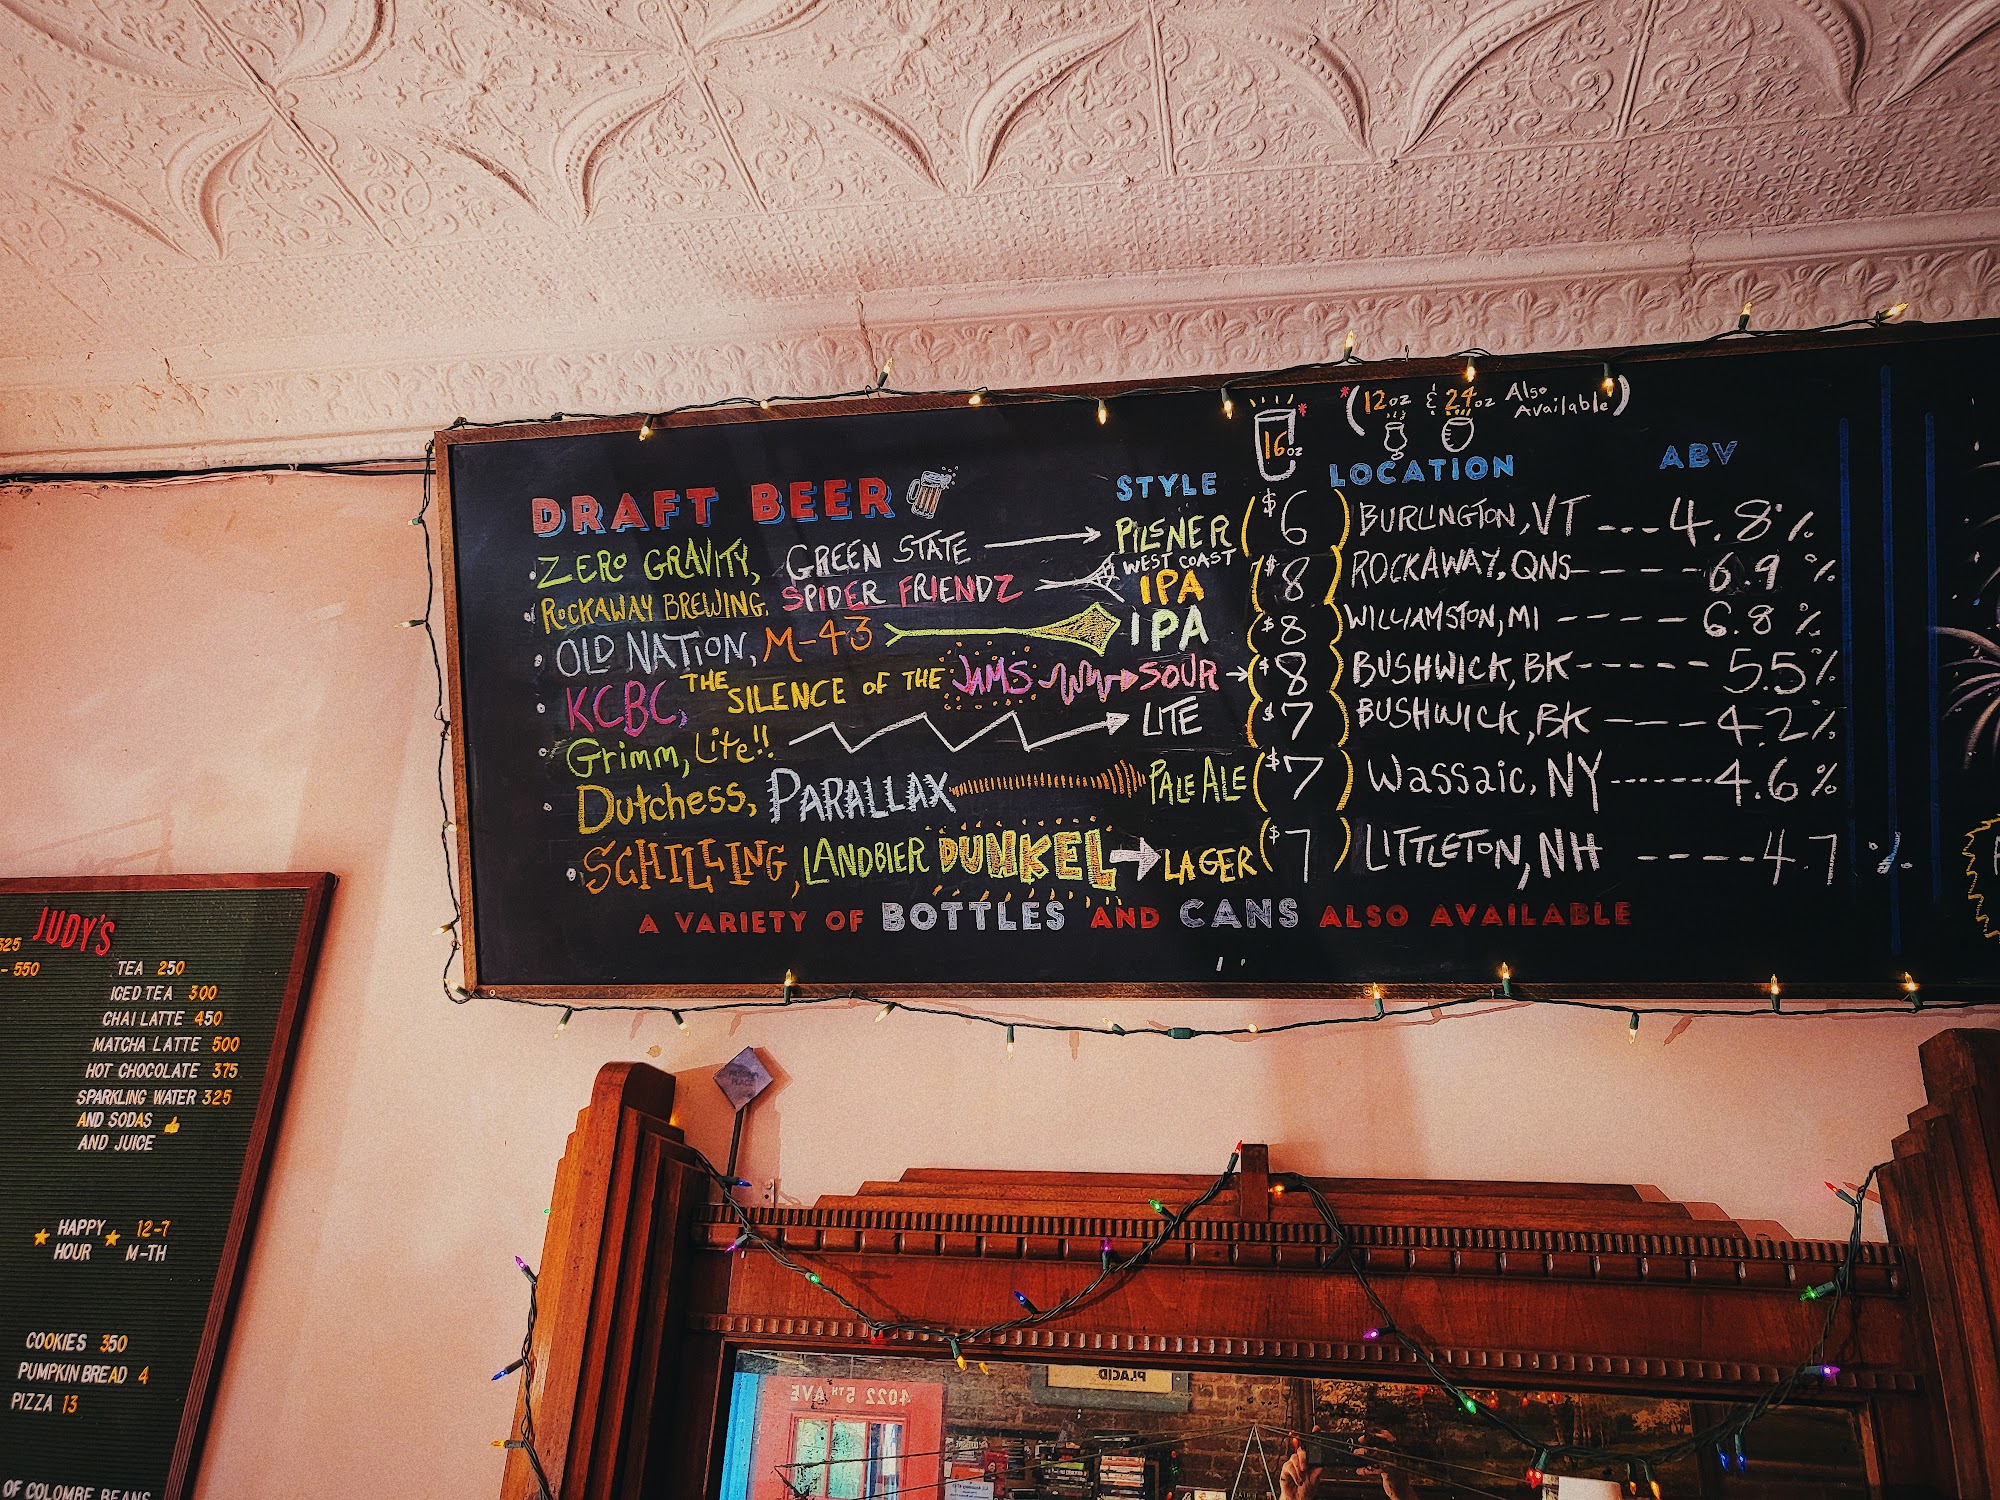 *(12oz & 24oz Also Available)
16oz*
DRAFT BEER STYLE LOCATION ABV
ZERO GRAVITY, GREEN STATE PILSNER ($6) BURLINGTON, VT ---4.8%
ROCKAWAY BREWING. SPIDER FRIENDZ WEST COAST IPA ($8) ROCKAWAY, QNS ----6.9%
OLD NATION, M-43 IPA ($8) WILLIAMSTON, MI ----6.8%
KCBC, THE SILENCE OF THE JAMS SOUR ($8) BUSHWICK, BK -----5.5%
Grimm, Lite!! LITE ($7) BUSHWICK, BK ---4.2%
Dutchess, PARALLAX PALE ALE ($7) Wassaic, NY ------4.6%
SCHILLING, LANDBIER DUNKEL LAGER ($7) LITTLETON, NH ----4.7%
A VARIETY OF BOTTLES AND CANS ALSO AVAILABLE
JUDY'S
325
- 550
TEA 250
ICED TEA 300
CHAI LATTE 450
MATCHA LATTE 500
HOT CHOCOLATE 375
SPARKLING WATER 325
AND SODAS
AND JUICE
HAPPY HOUR
12-7
M-TH
COOKIES 350
PUMPKIN BREAD 4
PIZZA 13
OF COLOMBE BEANS
4022 5TH AVE
PLACID